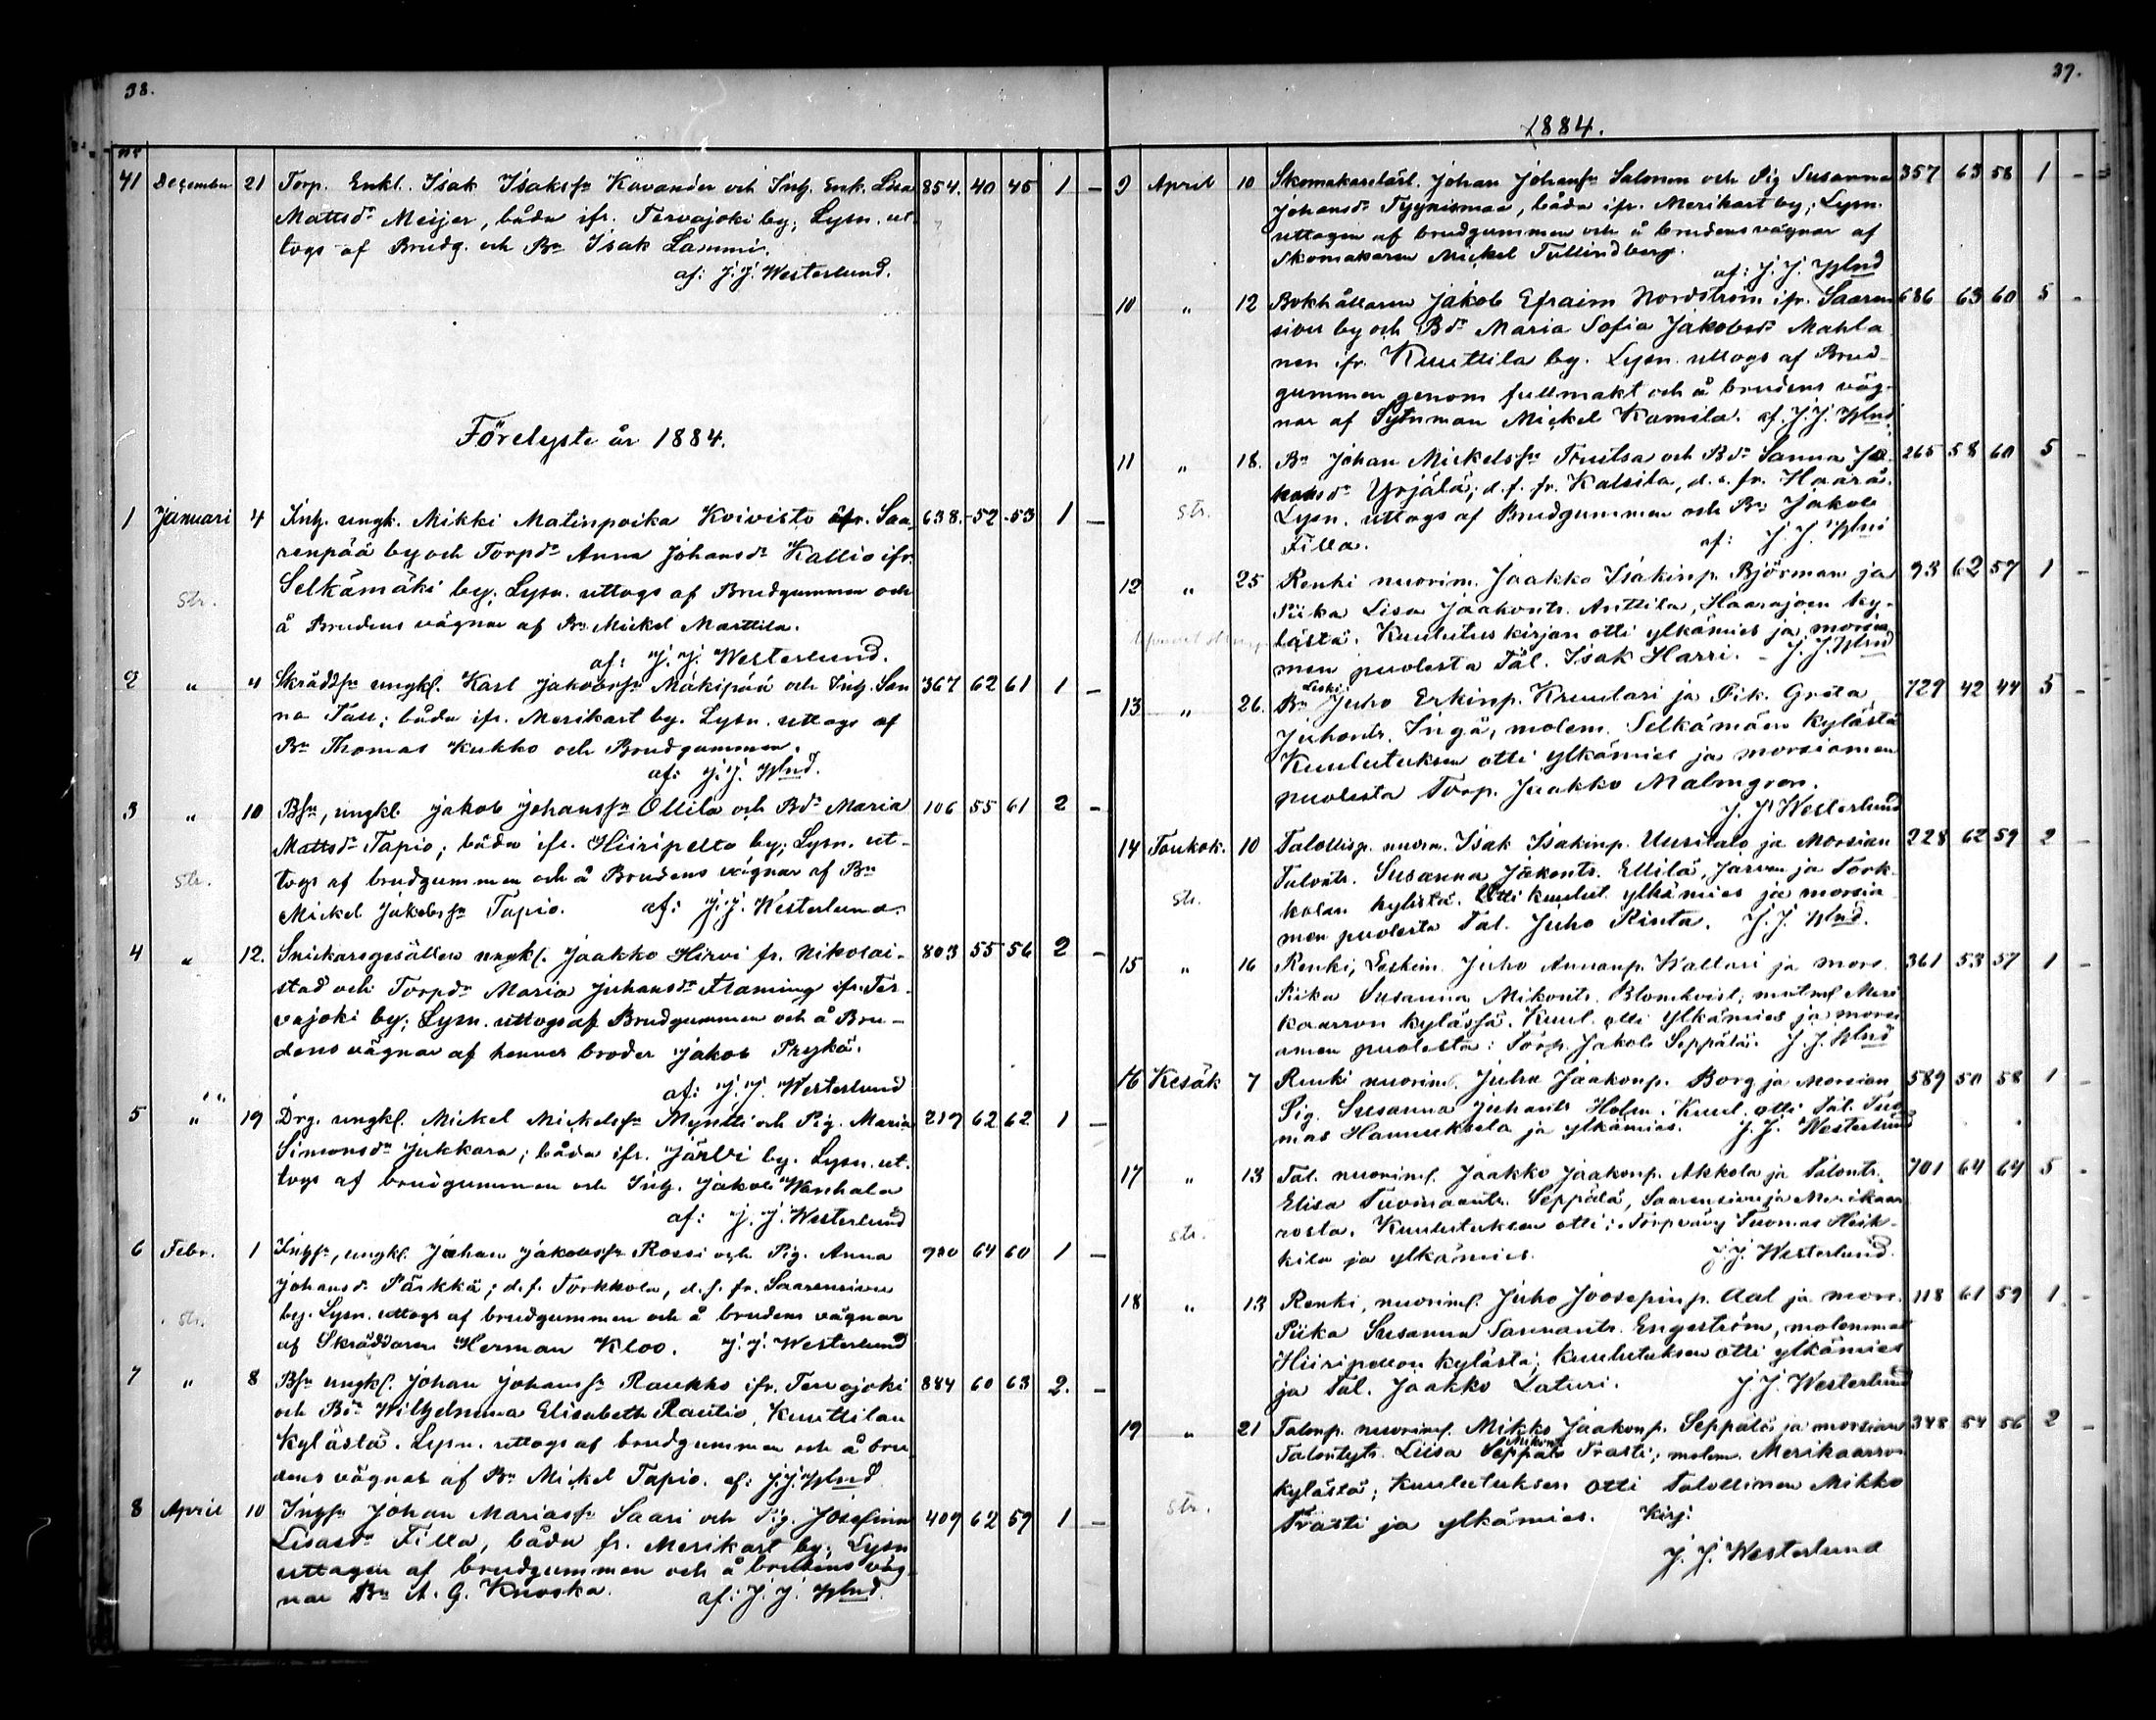 38.
No
41 December 21 Torp. Enkl. Isak Isakssn Kavander och Inh. Enk. Lisa 854. 40 45 1 –
Mattsdr Meijer, båda ifr. Tervajoki by; Lysn. ut-
togs af Brudg. och Bn Isak Lammi.
af: J. J. Westerlund.
Förelyste år 1884.
1 Januari 4 Inh. ungk. Mikki Matinpoika Koivisto ifr. Saa- 638. 52 53 1 –
renpää by och Torpdr Anna Johansdr Kallio ifr.
Selkämäki by; Lysn. uttogs af Brudgummen och
str.
å Brudens vägnar af Bn Mickel Marttila.
af: J. J. Westerlund.
2 " 4 Skräddsn ungkl. Karl Jakobssn Mäkipää och Inh. San 367 62 61 1 –
na Tau; båda ifr. Merikart by. Lysn. uttogs af
Bn Thomas Kukko och Brudgummen.
af: J. J. Wlnd.
3 " 10 Bsn, ungkl. Jakob Johanssn Ollila och Bdr Maria 106 55 61 2 –
Mattsdr Tapio; båda ifr. Hiiripelto by; Lysn. ut-
str. togs af brudgummen och å Brudens vägnar af Bn
Mickel Jakobssn Tapio. af: J. J. Westerlund.
4 " 12. Snickaregesällen ungkl. Jaakko Hirvi fr. Nikolai- 803 55 56 2 –
stad och Torpdr Maria Juhansdr Flaming ifr. Ter-
vajoki by; Lysn. uttogs af Brudgummen och å Bru-
dens vägnar af hennes broder Jakob Prykä.
af: J. J. Westerlund
5 " 19 Drg. ungkl. Mickel Mickelssn Myntti och Pig. Maria 219 62 62 1 –
Simonsdr Jukkara; båda ifr. Järvi by. Lysn. ut-
togs af brudgummen och Inh. Jakob Wanhala
af: J. J. Westerlund
6 Febr. 1 Inhsn, ungkl. Johan Jakobssn Rossi och Pig. Anna 64 60 1 –
Johansdr Pärkkä; d. f. Torkkola, d. s. fr. Saarensivu
str. by. Lysn. uttogs af brudgummen och å brudens vägnar
af Skräddaren Herman Kloo. J. J. Westerlund
7 " 8 Bsn ungkl. Johan Johanssn Raukko ifr. Tervajoki 884 60 63 2. –
och Bdr Wilhelmina Elisabeth Rautio, Kuuttilan
kylästä. Lysn. uttogs af brudgummen och å bru
dens vägnar af Bn Mickel Tapio. af: J. J. Wlnd
8 April 10 Inhsn Johan Mariassn Saari och Pig. Josefina 409 62 59 1 –
Lisasdr Filla, båda fr. Merikart by; Lysn
uttagen af brudgummen och å brudens väg-
nar Bn A. G. Knoska. af: J. J. Wlnd.
39.
1884.
9 April 10 Skomakarelärl. Johan Johanssn Salonen och Pig Susanna 357 63 58 1 –
Johansdr Tyynismaa, båda ifr. Merikart by; Lysn.
uttagen af brudgummen och å brudens vägnar af
Skomakaren Mickel Tullindberg.
af: J. J. Wlnd
10 " 12 Bokhållaren Jakob Efraim Nordström ifr. Saaren 686 63 60 5 –
sivu by och Bdr Maria Sofia Jakobsdr Mahla
nen ifr. Kuuttila by. Lysn. uttogs af Brud-
gummen genom fullmakt och å brudens väg-
nar af Sytnman Mickel Kamila. af. J. J. Wlnd.
11 " 18. Bn Johan Mickelssn Truitsa och Bdr Sanna Ja- 265 58 60 5 –
kobsdr Yrjälä; d. f. fr. Kalsila, d. s. fr. Haarä.
str. Lysn. uttogs af Brudgummen och Bn Jakob
Filla. af: J. J. Wlnd
12 " 25 Renki nuorim. Jaakko Isakinp. Björman ja 93 62 57 1 –
Piika Lisa Jaakontr. Anttila, Haarajoen ky-
lästä. Kuulutus kirjan otti ylkämies ja morsia
men puolesta Tal. Isak Harri. – J. J. Wlnd
13 " 26. Bn Leski Juho Erkinp. Kruutari ja Pik. Greta 729 42 44 5 –
Juhontr. Ingä, molem. Selkämäen kylästä
Kuulutuksen otti ylkämies ja morsiamen
puolesta Torp. Jaakko Malmgren.
J. J. Westerlund
14 Toukok. 10 Talollisp. nuorm. Isak Isakinp. Uusitalo ja Morsian 228 62 59 2 –
Talontr. Susanna Jakontr. Ellilä, Järven ja Tork-
str. kolan kylistä. Otti kuulut. ylkämies ja morsia
men puolesta Tal. Juho Rinta. J. J. Wlnd.
15 " 16 Renki, Leskim. Juho Annanp. Wallari ja mors. 361 53 57 1 –
Piika Susanna Mikontr. Blomkvist; Meri
kaarron kylässä. Kuul. otti ylkämies ja morsi
amen puolesta: Torp. Jakob Seppälä. J. J. Wlnd
16 Kesäk 7 Renki nuoriml. Juha Jaakonp. Borg ja Morsian 589 50 58 1 –
Pig. Susanna Juhantr Holm. Kuul. otti Tal. Tuo
mas Hannuksela ja ylkämies. J. J. Westerlund
17 " 13 Tal. nuoriml. Jaakko Jaakonp. Akkola ja Talontr. 701 64 64 5 –
Elisa Tuomaantr. Seppälä, Saarensivu ja Merikaar
str. rosta. Kuulutuksen otti: Torpväry Tuomas Heik-
kila ja ylkämies. J. J. Westerlund.
18 " 13 Renki, nuoriml. Juho Joosepinp. Aal ja mors. 118 61 59 1. –
Piika Susanna Sannantr. Engeström, molemmat
Hiiripellon kylästä; Kuulutuksen otti ylkämies
ja Tal. Jaakko Laturi. J. J. Westerlund
19 " 21 Talonp. nuoriml. Mikko Jaakonp. Seppälä ja morsian 348 54 56 2 –
Talontytr. Liisa Seppälä Mikont. Trasti; molem. Merikaarron
kylästä; Kuulutuksen otti Talollinen Mikko
str. Trasti ja ylkämies. Kirj.
J. J. Westerlund